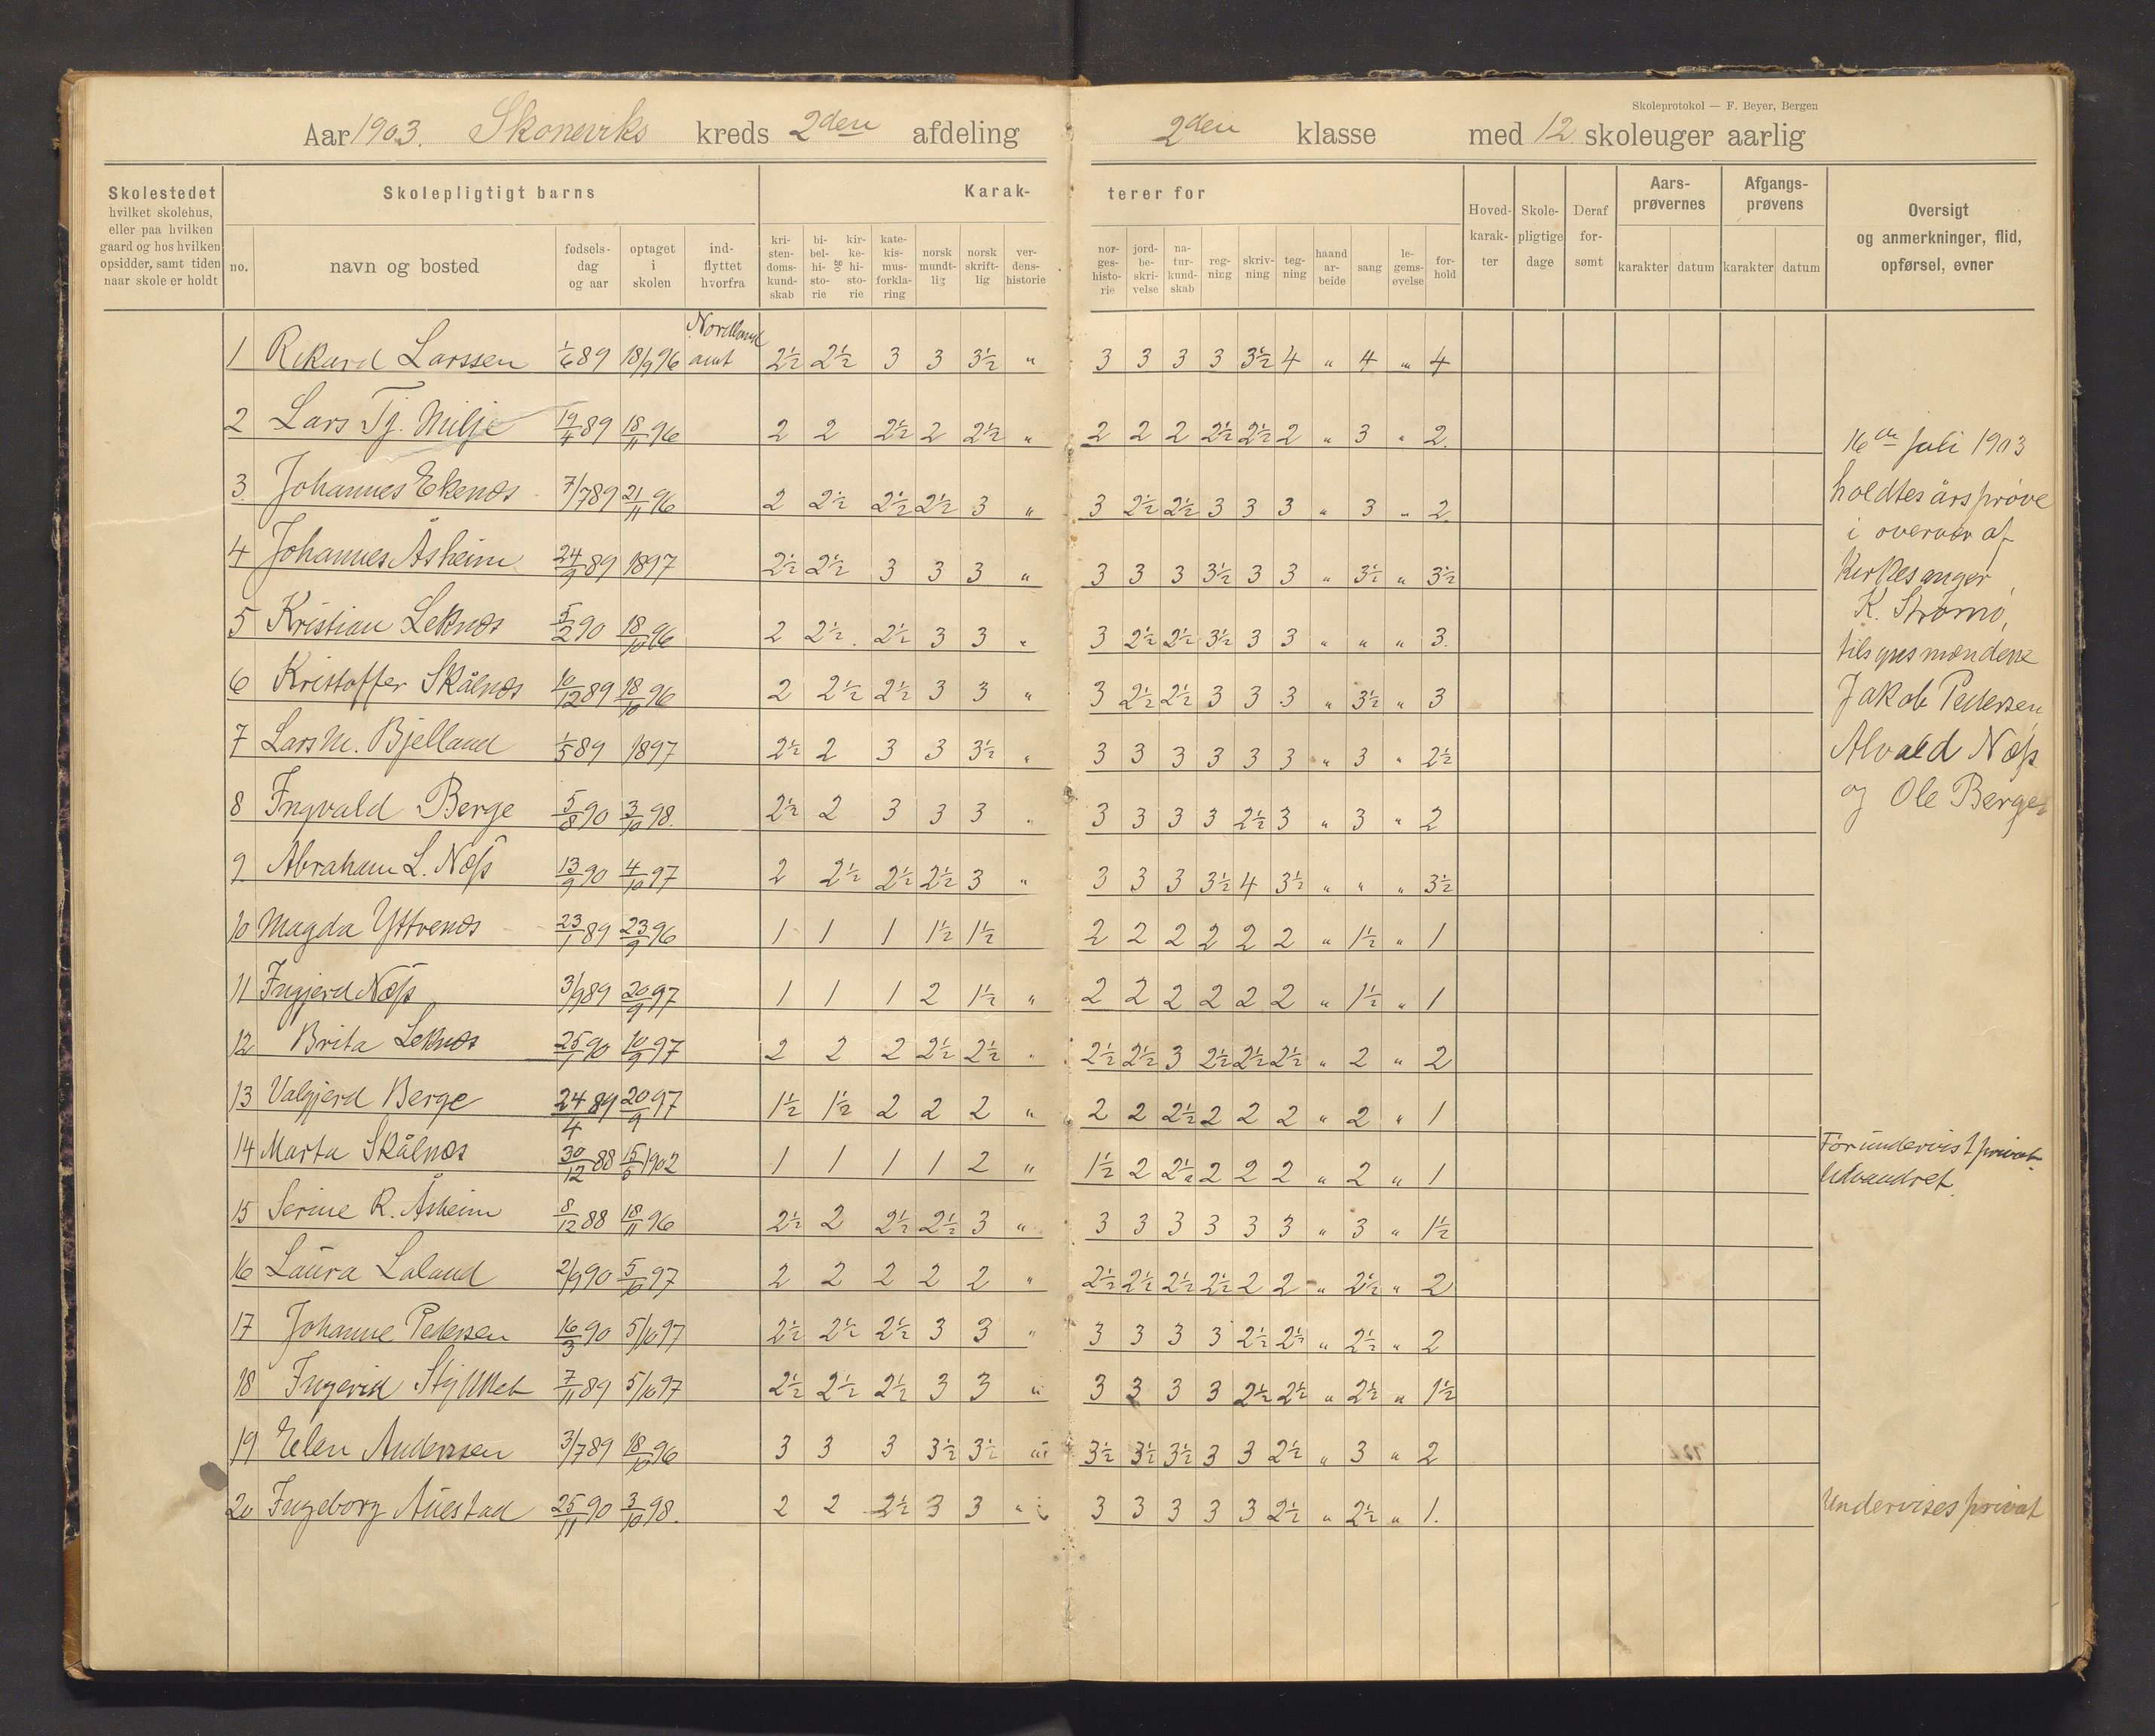 Skoleprotokol — F. Beyer, Bergen
Aar 1903. Skoneviks kreds 2den afdeling 2den klasse med 12 skoleuger aarlig
Skolestedet hvilket skolehus, eller paa hvilken gaard og hos hvilken opsidder, samt tiden naar skole er holdt
Skolepligtigt barns
no. navn og bosted fødsels-dag og aar optaget i skolen ind-flyttet hvorfra
Karak-terer for
kri-sten-doms-kund-skab bi-bel-hi-sto-rie og kir-ke-hi-sto-rie kate-kis-mus-forkla-ring norsk mundt-lig norsk skrift-lig ver-dens-historie nor-ges-histo-rie jord-be-skri-velse na-tur-kund-skab reg-ning skriv-ning teg-ning haand ar-beide sang le-gems-øvelse for-hold
Hoved-karak-ter Skole-pligtige dage Deraf for-sømt
Aars-prøvernes karakter datum
Afgangs-prøvens karakter datum
Oversigt og anmerkninger, flid, opførsel, evner
1 Rikard Larssen 1/6 89 18/9 96 Nordlands amt 2½ 2½ 3 3 3½ " 3 3 3 3 3½ 4 " 4 " 4
2 Lars Tj. Milje 19/4 89 18/11 96 2 2 2½ 2 2½ " 2 2 2 2½ 2½ 2 " 3 " 2.
3 Johannes Ekenæs 7/7 89 21/11 96 2 2½ 2½ 2½ 3 " 3 2½ 2½ 3 3 3 " 3 " 2.
4 Johannes Åsheim 24/9 89 1897 2½ 2½ 3 3 3 " 3 3 3 3½ 3 3 " 3½ " 3½
5 Kristian Leknæs 5/2 90 18/10 96 2 2½ 2½ 3 3 " 3 2½ 2½ 3½ 3 3 " " " 3.
6 Kristoffer Skålnæs 10/12 89 18/10 96 2 2½ 2½ 3 3 " 3 2½ 2½ 3 3 3 " 3½ " 3
7 Lars M. Bjelland 1/5 89 1897 2½ 2 3 3 3½ " 3 3 3 3 3 3 " 3 " 2½
8 Ingvald Berge 5/8 90 3/10 98. 2½ 2 3 3 3 " 3 3 3 3 2½ 3 " 3 " 2
9 Abraham L. Næss 13/9 90 4/10 97 2 2½ 2½ 2½ 3 " 3 3 3 3½ 4 3½ " " " 3½
10 Magda Yttrenæs 23/1 89 23/9 96 1 1 1 1½ 1½ 2 2 2 2 2 2 " 1½ " 1
11 Ingjerd Næss 3/9 89 20/9 97 1 1 1 2 1½ " 2 2 2 2 2 2 " 1½ " 1
12 Brita Leknæs 25/1 90 10/9 97 2 2 2 2½ 2½ " 2½ 2½ 3 2½ 2½ 2½ " 2 " 2
13 Valgjerd Berge 24/4 89 20/9 97 1½ 1½ 2 2 2 " 2 2 2½ 2 2 2 " 2 " 1
14 Marta Skålnæs 30/12 88 15/5 1902 1 1 1 1 2 " 1½ 2 2½ 2 2 2 " 2 " 1
15 Serine R. Åsheim 8/12 88 18/11 96 2½ 2 2½ 2½ 3 " 3 3 3 3 3 3 " 3 " 1½
16 Laura Laland 2/9 90 5/10 97 2 2 2 2 2 " 2½ 2½ 2½ 2½ 2 2 " 2½ " 2
17 Johanne Pedersen 16/3 90 5/10 97 2½ 2½ 2½ 3 3 " 3 3 3 3 2½ 2½ " 2½ " 2
18 Ingerid 7/11 89 5/10 97 2½ 2½ 2½ 3 3 " 3 3 3 3 2½ 2½ " 2½ " 1½
19 Elen Anderssen 3/7 89 18/10 96 3 3 3 3½ 3½ " 3½ 3½ 3½ 3 3 2½ " 3 " 2
20 Ingeborg Auestad 25/11 90 3/10 98. 2 2 2½ 3 3 " 3 3 3 3 3 2½ " 2½ " 1.
16de Juli 1903
holdtes årsprøve
i overvær af
Kirkesanger
K. Strømø,
tilsynsmændene
Jakob Pedersen,
Alvald Næss
og Ole Berge
Før undervist privat.
Udvandret.
Undervises privat